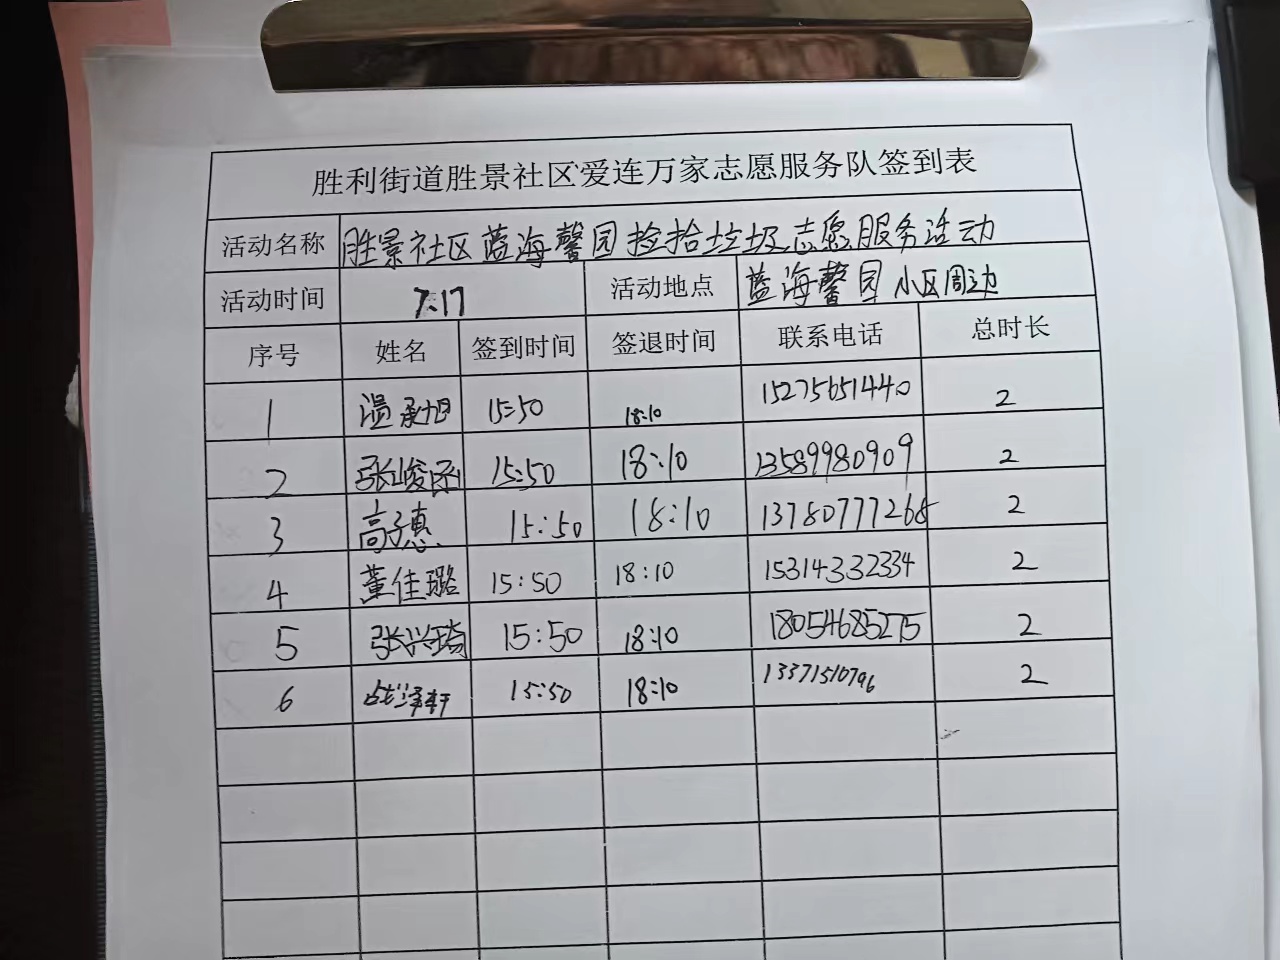 胜利街道胜景社区爱连万家志愿服务队签到表
活动名称 胜景社区蓝海馨园捡拾垃圾志愿服务活动
活动时间 7.17 活动地点 蓝海馨园小区周边
序号 姓名 签到时间 签退时间 联系电话 总时长
1 温承旭 15:50 18:10 15275651440 2
2 张峻 15:50 18:10 13589980909 2
3 高子惠 15:50 18:10 13780777268 2
4 董佳璐 15:50 18:10 15314332334 2
5 张兴琦 15:50 18:10 18054685275 2
6 15:50 18:10 13371510796 2